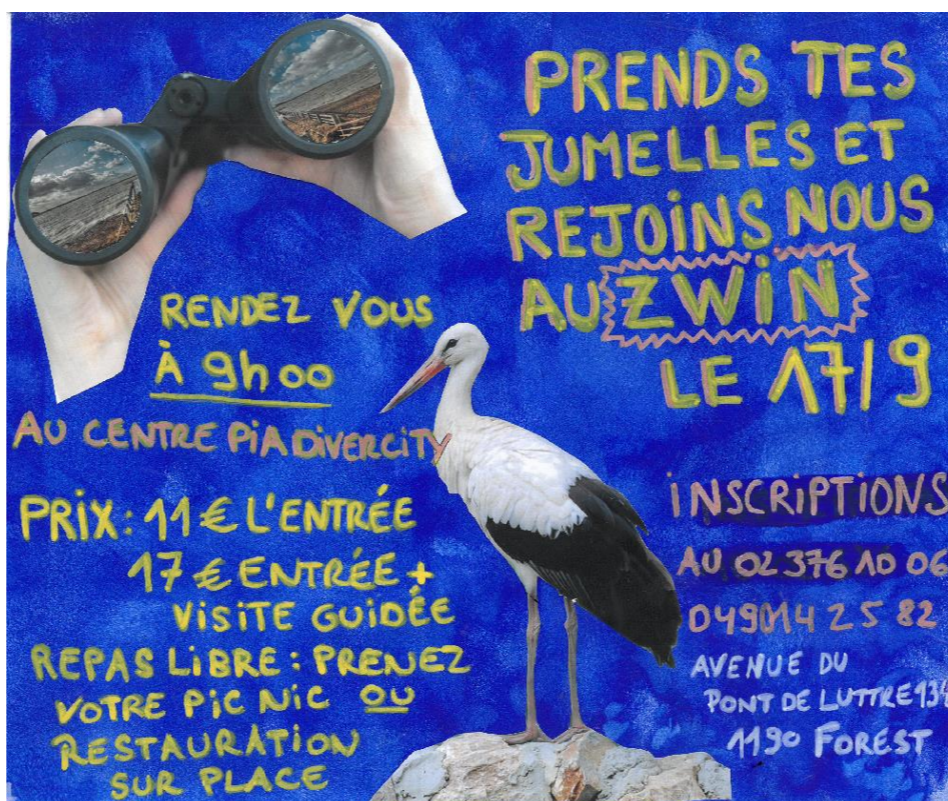 PRENDS TES
JUMELLES ET
REJOINS NOUS
AU ZWIN
LE 17/9
RENDEZ VOUS
À 9h00
AU CENTRE PIADIVERCITY
PRIX: 11 € L'ENTRÉE
17 € ENTRÉE +
VISITE GUIDÉE
REPAS LIBRE: PRENEZ
VOTRE PIC NIC OU
RESTAURATION
SUR PLACE
INSCRIPTIONS
AU 02 376 10 06
AVENUE DU
PONT DE LUTTRE
1190 FOREST